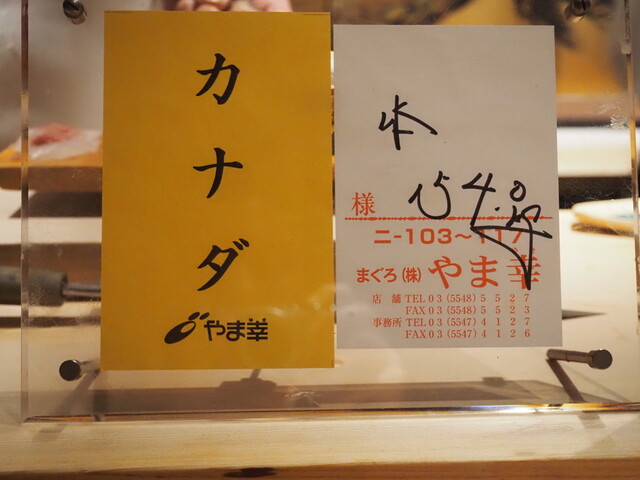 カナダ
やま幸
様
ニ-103～117
まぐろ(株)やま幸
店舗 TEL 03 (5548) 5527
FAX 03 (5548) 5523
事務所 TEL 03 (5547) 4127
FAX 03 (5547) 4126